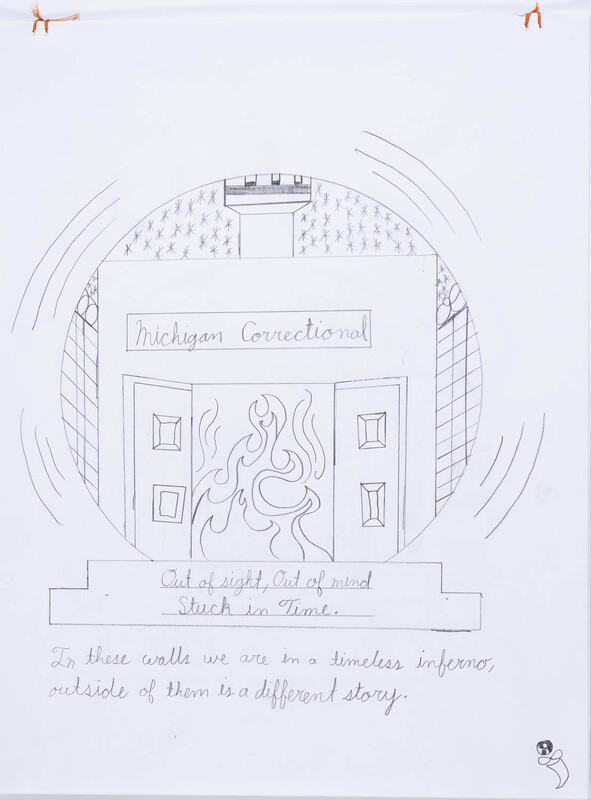 Michigan Correctional
Out of sight, Out of mind
Stuck in Time.
In these walls we are in a timeless inferno,
outside of them is a different story.